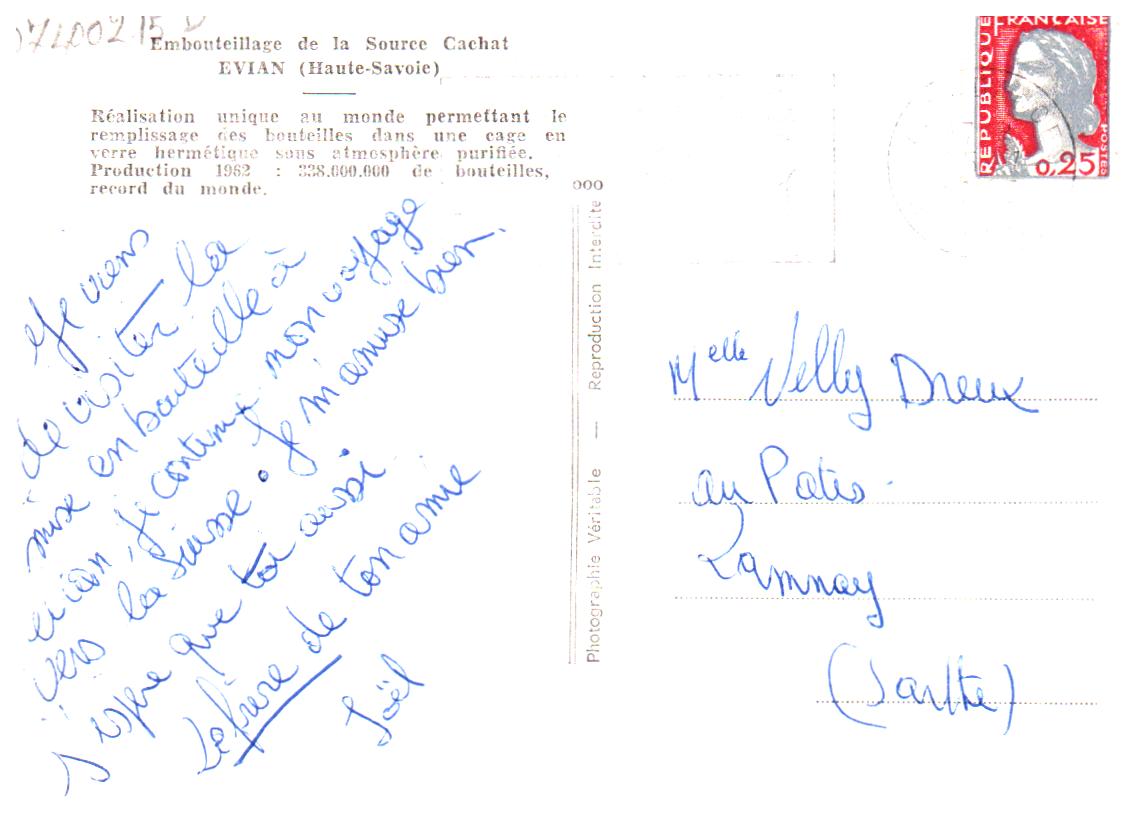 Embouteillage de la Source Cachat
EVIAN (Haute-Savoie)
Réalisation unique au monde permettant le
remplissage des bouteilles dans une cage en
verre hermétique sous atmosphère purifiée.
Production 1962 : 338.000.000 de bouteilles,
record du monde.
Je viens
de visiter la
mise en bouteille à
evian, je continue mon voyage
vers la Suisse. Je m'amuse bien.
J'espère que toi aussi
Le frère de ton amie
Joël
Photographie Véritable — Reproduction Interdite
REPUBLIQUE
FRANÇAISE
POSTES
0,25
Melle Nelly Dreux
au Patis.
Lamnay
(Sarthe)